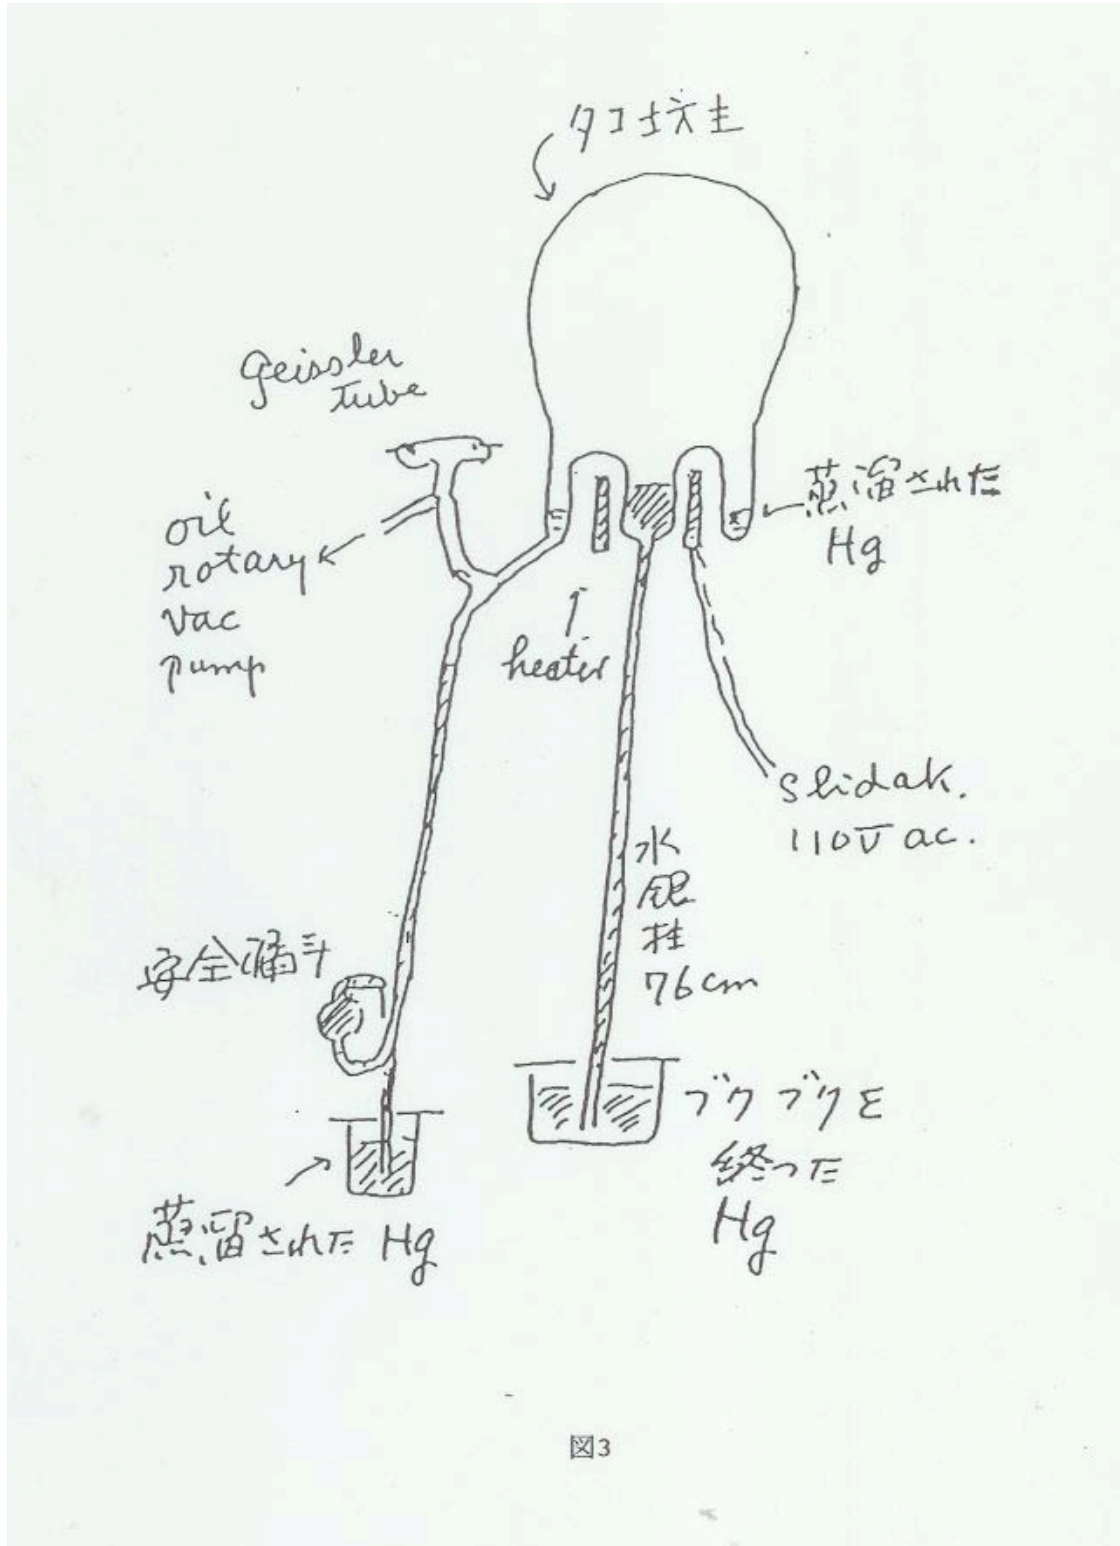 タコ坊主
Geissler
tube
oil
rotary
vac
pump
蒸溜された
Hg
heater
Slidak.
110V ac.
水
銀
柱
76cm
安全漏斗
ブクブクを
終った
Hg
蒸溜された Hg
図3